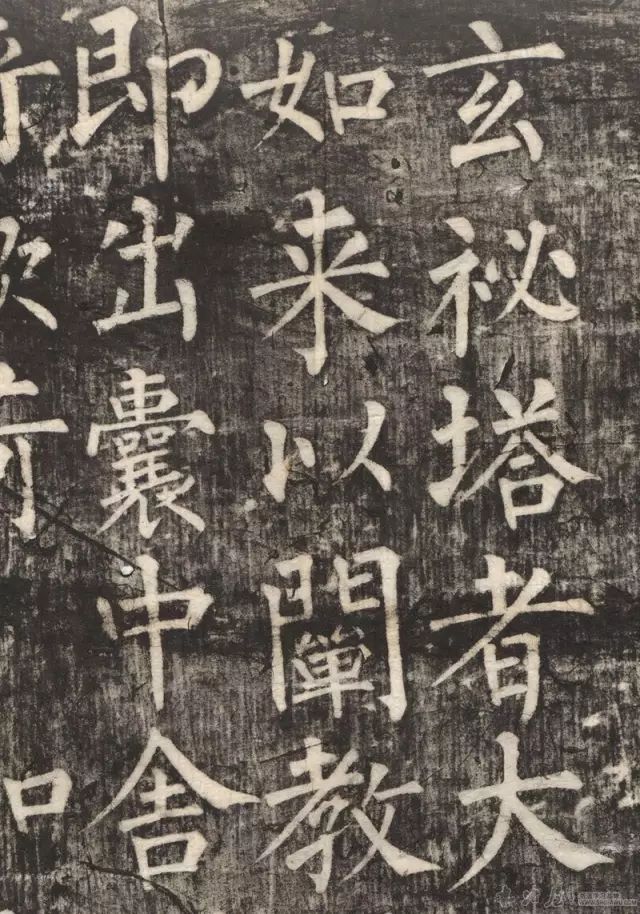 玄祕塔者大
如来以闡教
即出囊中舍